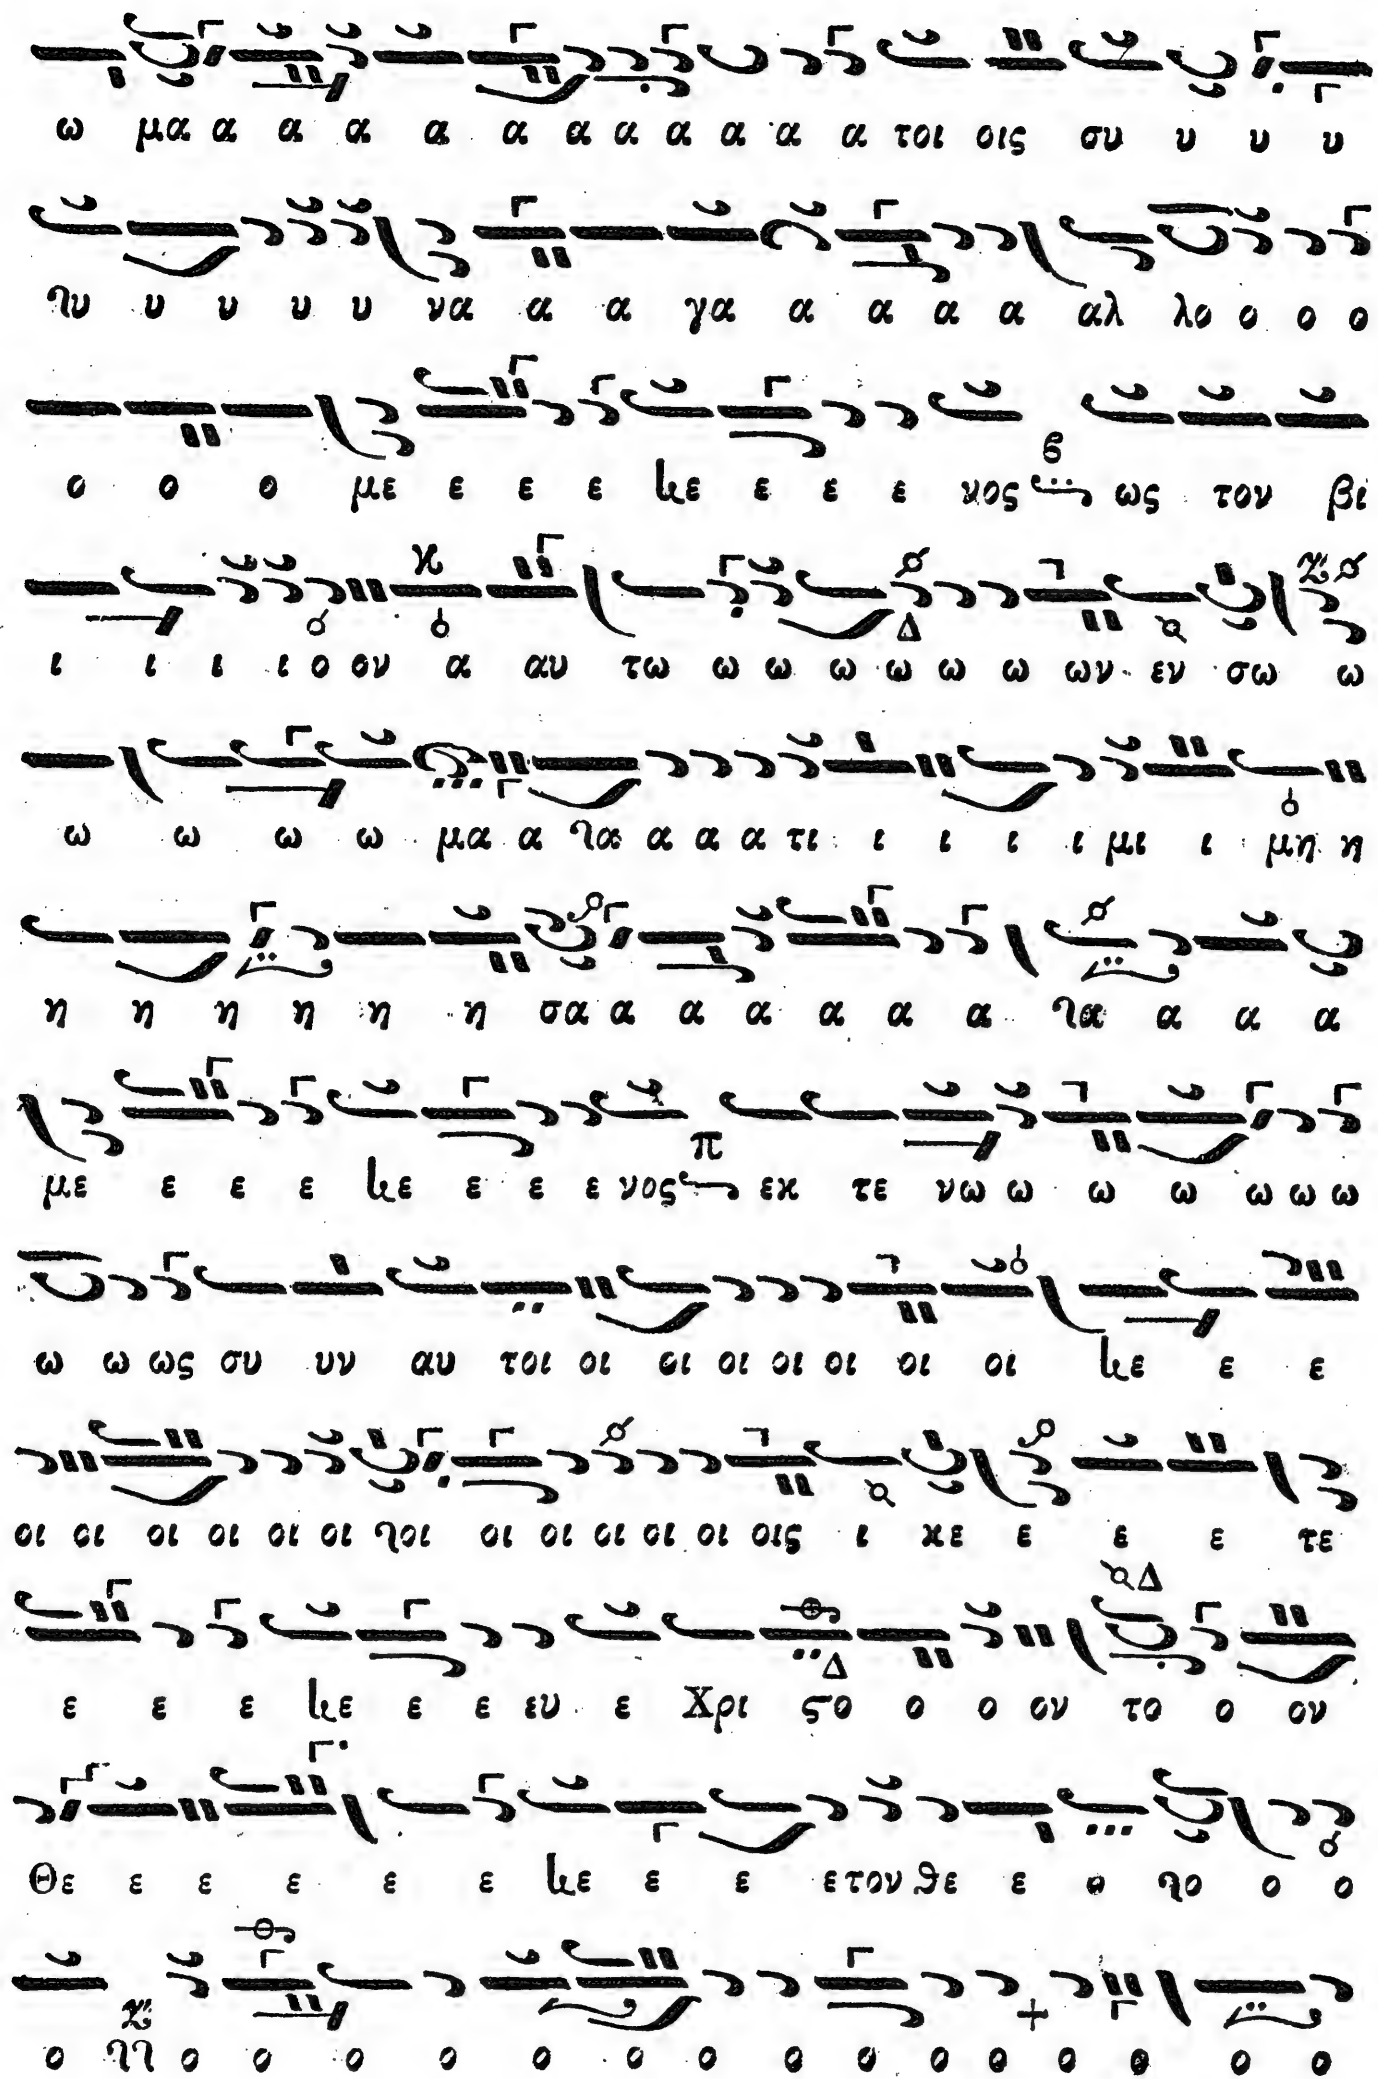 ω μα α α α α α α α α α α α τοι οις συ υ υ υ
ϡυ υ υ υ υ να α α γα α α α α αλ λο ο ο ο
ο ο ο με ε ε ε ͷε ε ε ε νος ως τον βι
ι ι ι ι ο ον α αυ τω ω ω ω ω ω ω ων εν σω ω
ω ω ω ω μα α ϡα α α α τι ι ι ι ι μι ι μη η
η η η η η η σα α α α α α α ϡα α α α
με ε ε ε ͷε ε ε ε νος εκ τε νω ω ω ω ω ω ω
ω ω ως συ υν αυ τοι οι οι οι οι οι οι οι ͷε ε ε
οι οι οι οι οι οι ϡοι οι οι οι οι οι οις ι κε ε ε ε τε
ε ε ε ͷε ε ε ευ ε Χρι ϛο ο ο ον το ο ον
Θε ε ε ε ε ε ͷε ε ε ε τον ϑε ε ο ϡο ο ο
ο ϡϡ ο ο ο ο ο ο ο ο ο ο ο ο ο ο ο